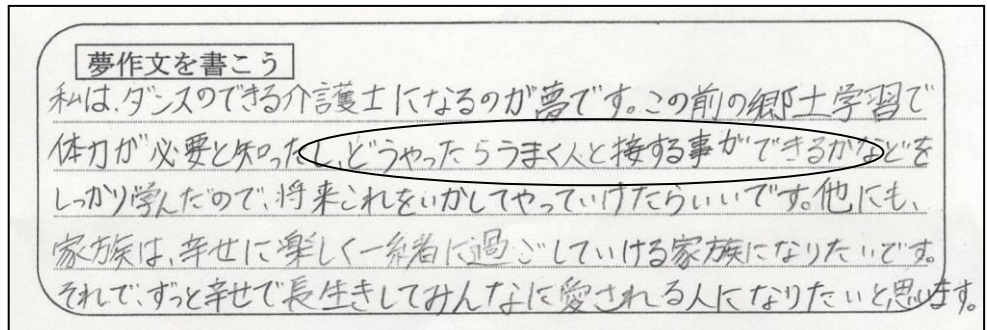 夢作文を書こう
私は、ダンスのできる介護士になるのが夢です。この前の郷土学習で
体力が必要と知ったし、どうやったらうまく人と接する事ができるかなどを
しっかり学んだので、将来これをいかしてやっていけたらいいです。他にも、
家族は、幸せに楽しく一緒に過ごしていける家族になりたいです。
それで、ずっと幸せで長生きしてみんなに愛される人になりたいと思います。